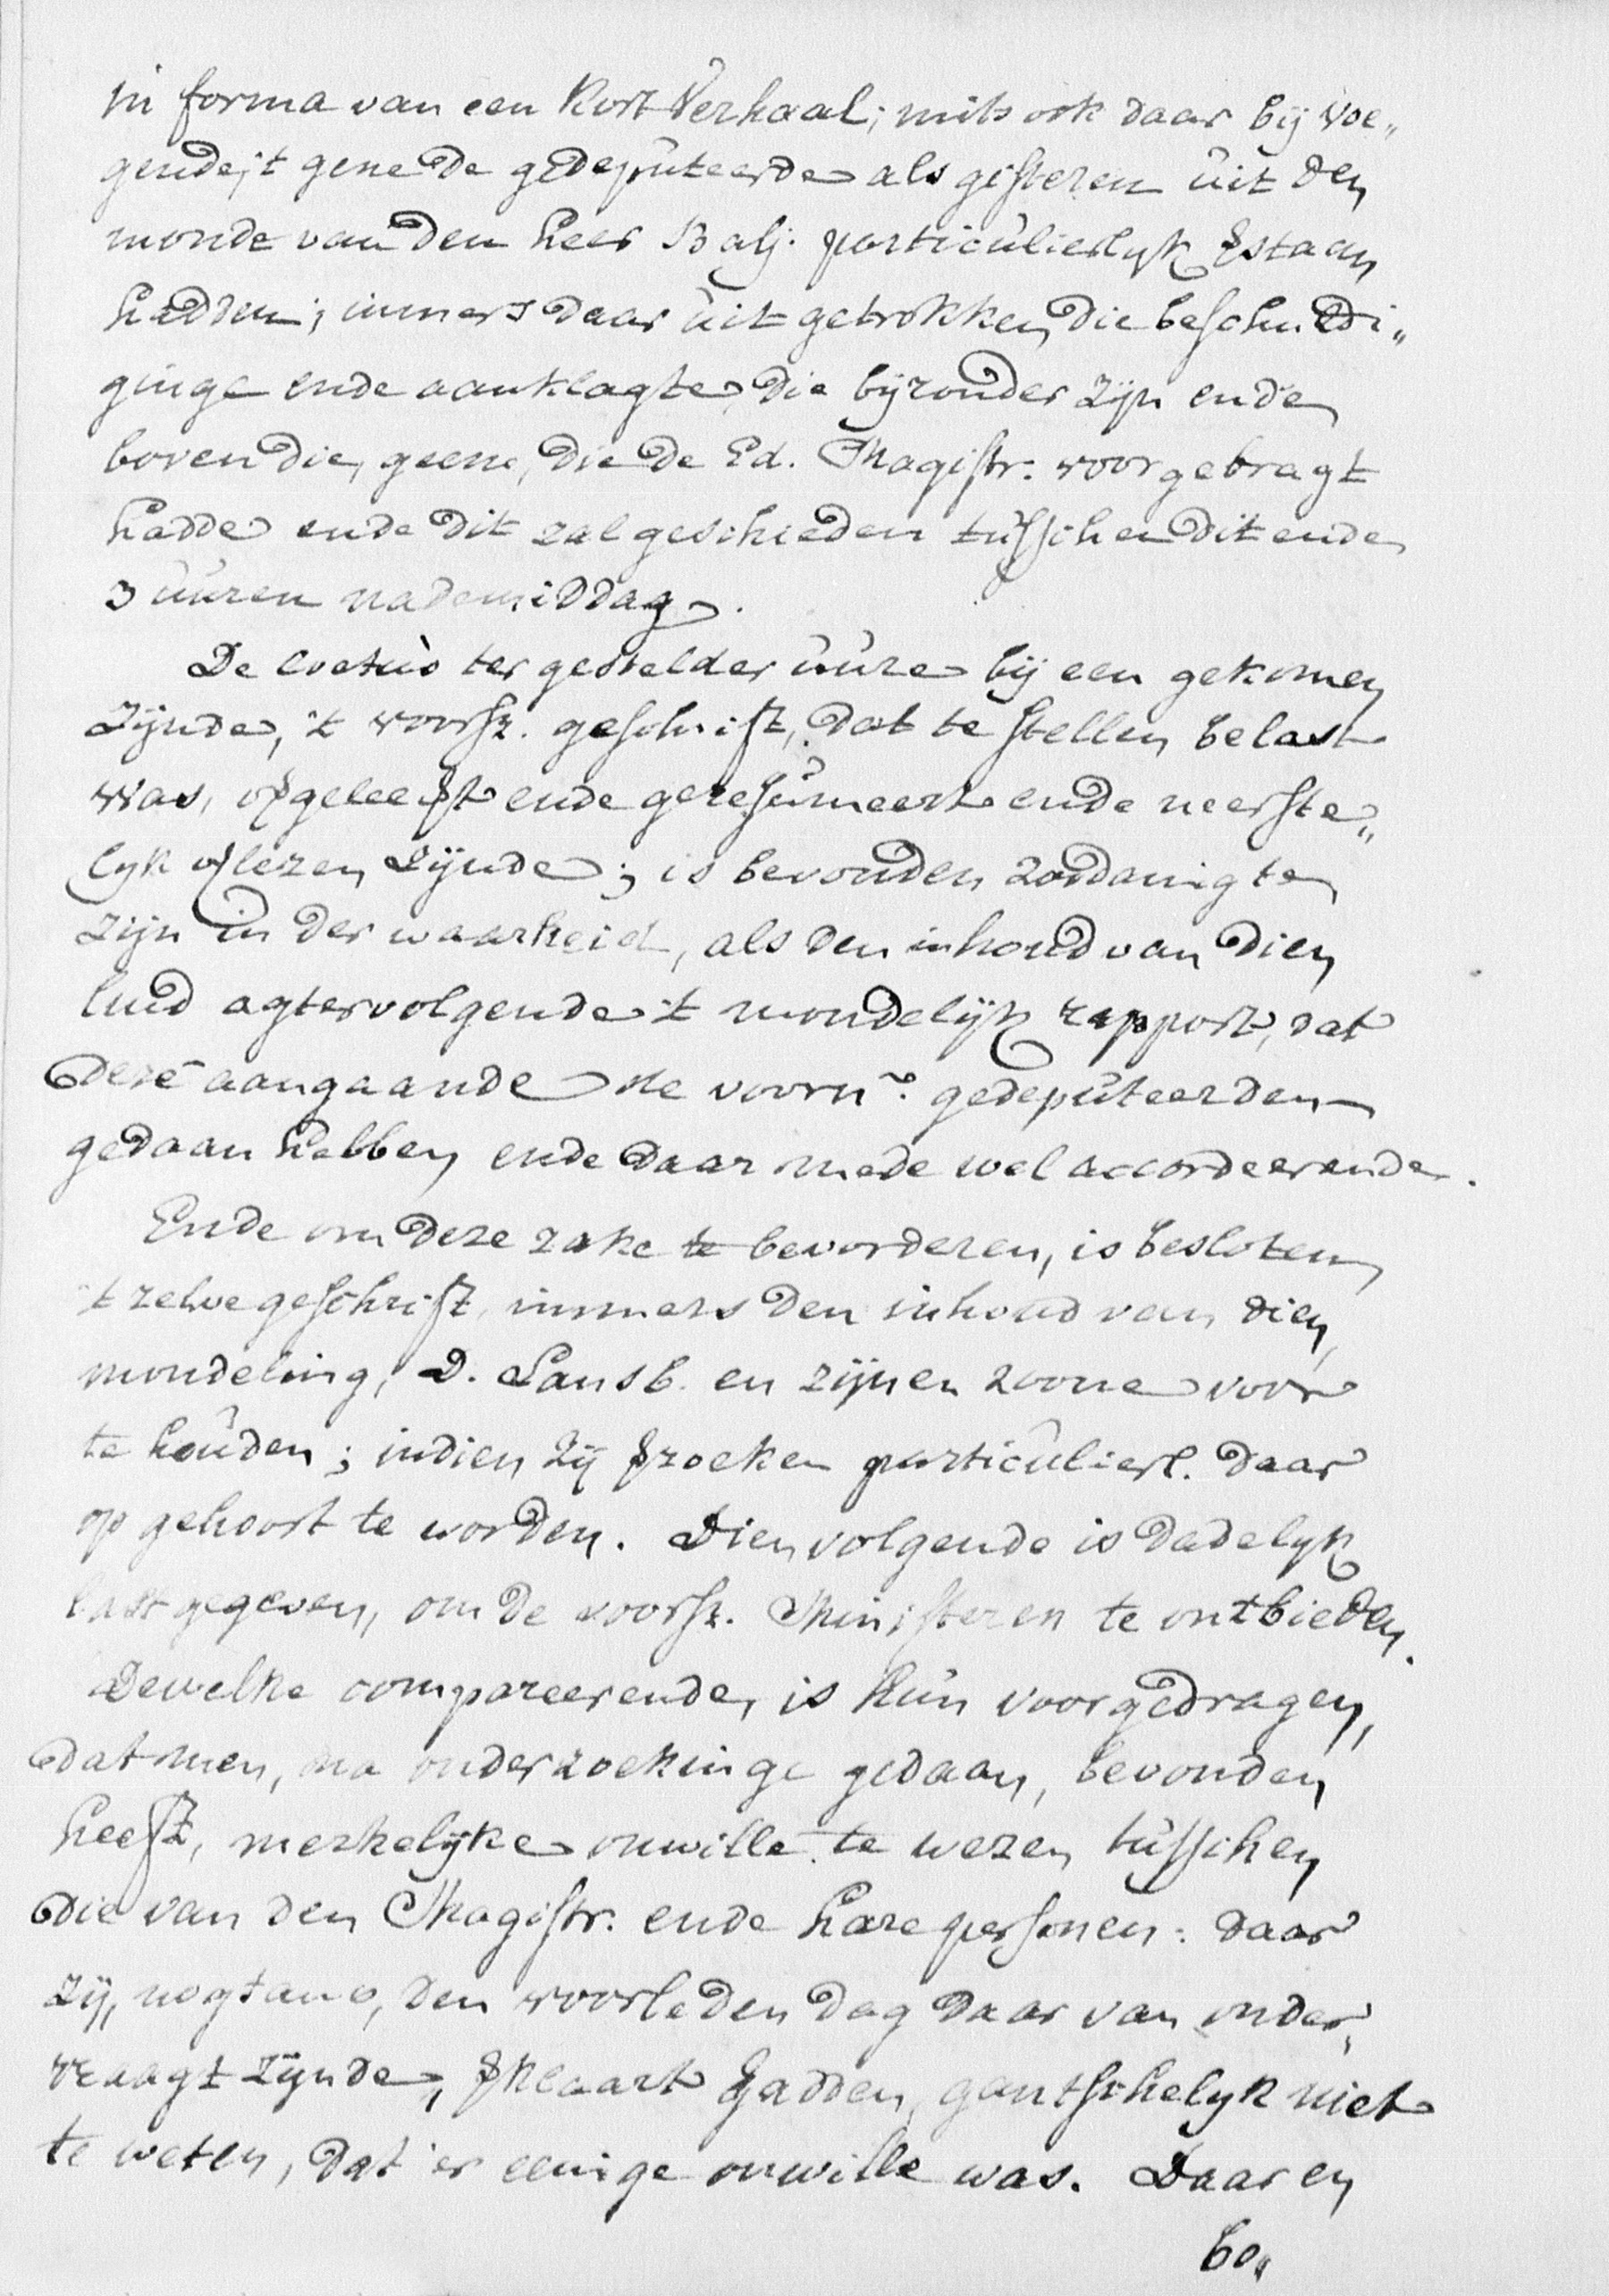 in forma van een Kort Verhaal; mits ook daar bij voe„
gende, 't gene de gedeputeerde als gisteren uit den
monde van den heer Balj. particulierlyk verstaan
hadden; immers daar uit getrokken die beschuldi„
ginge ende aanklagte, die byzonder zijn ende
boven die, geene, die de Ed. Magistr. voorgebragt
hadde ende dit zal geschieden tusschen dit ende
3 uuren nademiddag.
De Coetus ter gestelder uure bij een gekomen
zijnde, 't voorsz. geschrift, dat te stellen belast
was, opgeleest ende geresumeert ende neerste„
lyk oplezen zijnde; is bevonden zoodanig te
zijn in der waarheid, als den inhoud van dien
luid agtervolgende 't mondelijk rapport, dat
deze aangaande de voorn. gedeputeerden
gedaan hebben ende daar mede wel accordeerende.
Ende om deze zake te bevorderen, is besloten
't zelve geschrift, immers den inhoud van dien,
mondeling, D. Lansb. en zijnen zoone voor
te houden; indien zij verzoeken particulierl. daar
op gehoort te worden. Dien volgende is dadelyk
last gegeven, om de voorsz. Ministeren te ontbieden.
Dewelke compareerende, is hun voorgedragen,
dat men, na onderzoekinge gedaan, bevonden
heeft, merkelijke onwille te wezen tusschen
die van den Magistr. ende hare personen: daar
zij, nogtans, den voorleden dag daar van onder„
vraagt zijnde, verklaart hadden, gantschelyk niet
te weten, dat 'er eenige onwille was. Daar en
bo„